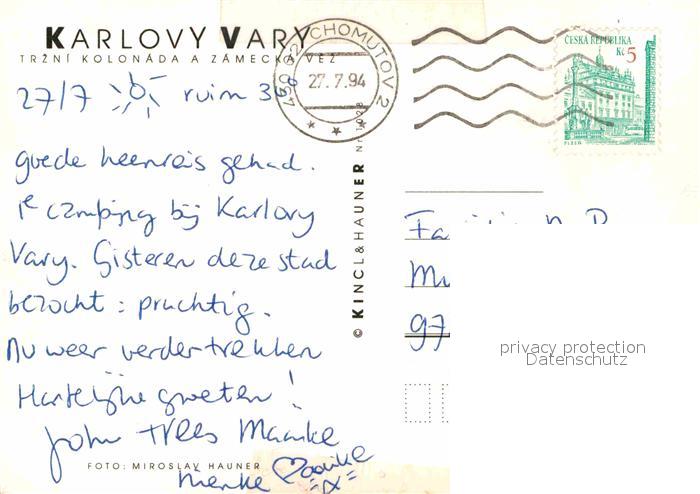 KARLOVY VARY
TRŽNÍ KOLONÁDA A ZÁMECKÁ VĚŽ
430 02 CHOMUTOV 2
27.7.94
ČESKÁ REPUBLIKA
Kč 5
PLZEŇ
27/7 ruim 36°
goede heenreis gehad.
1e camping bij Karlovy
Vary. Gisteren deze stad
bezocht : prachtig.
Nu weer verder trekken
Hartelijke groeten!
John Trees Maaike
Nienke
FOTO: MIROSLAV HAUNER
© KINCL & HAUNER Nr.
Fa
Mu
97
privacy protection
Datenschutz